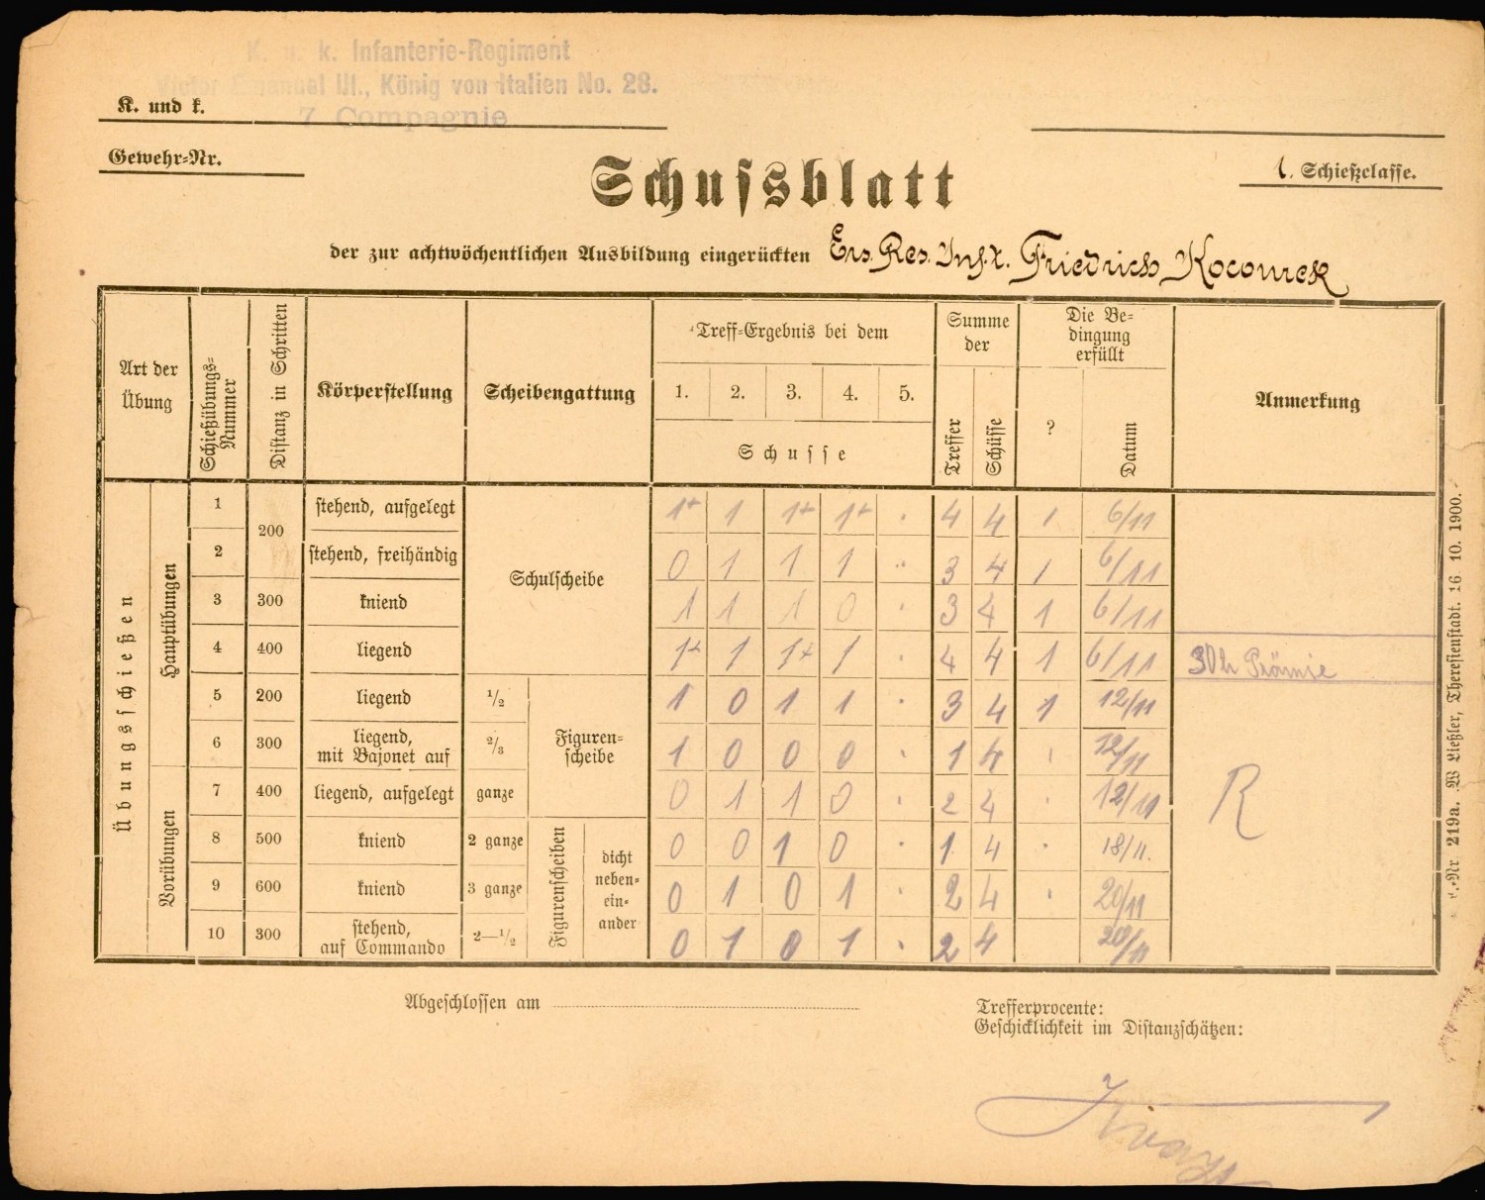 K. u. k. Infanterie-Regiment
Victor Emanuel III., König von Italien No. 28.
7 Compagnie
K. und k.
Gewehr-Nr.
1. Schießclasse.
Schussblatt
der zur achtwöchentlichen Ausbildung eingerückten Ers. Res. Inf. Friedrich
Art der Übung | Schießübungs-Nummer | Distanz in Schritten | Körperstellung | Scheibengattung | Treff-Ergebnis bei dem | Summe der | Die Bedingung erfüllt | Anmerkung
1. 2. 3. 4. 5. | Treffer | Schüsse | ? | Datum
Schusse
Übungsschießen
Hauptübungen
1 200 stehend, aufgelegt Schulscheibe 1+ 1 1+ 1+ · 4 4 1 6/11
2 stehend, freihändig 0 1 1 1 · 3 4 1 6/11
3 300 kniend 1 1 1 0 · 3 4 1 6/11
4 400 liegend 1+ 1 1+ 1 · 4 4 1 6/11 30 h Prämie
5 200 liegend 1/2 Figurenscheibe 1 0 1 1 · 3 4 1 12/11
6 300 liegend, mit Bajonet auf 2/3 1 0 0 0 · 1 4 · 12/11
Vorübungen
7 400 liegend, aufgelegt ganze 0 1 1 0 · 2 4 · 12/11 R
8 500 kniend 2 ganze Figurenscheiben dicht nebeneinander 0 0 1 0 · 1 4 · 18/11.
9 600 kniend 3 ganze 0 1 0 1 · 2 4 · 20/11
10 300 stehend, auf Commando 2—1/2 0 1 0 1 · 2 4 20/11
Abgeschlossen am
Trefferprocente:
Geschicklichkeit im Distanzschätzen:
Nr 219a. W Ließler, Theresienstadt. 16 10. 1900.